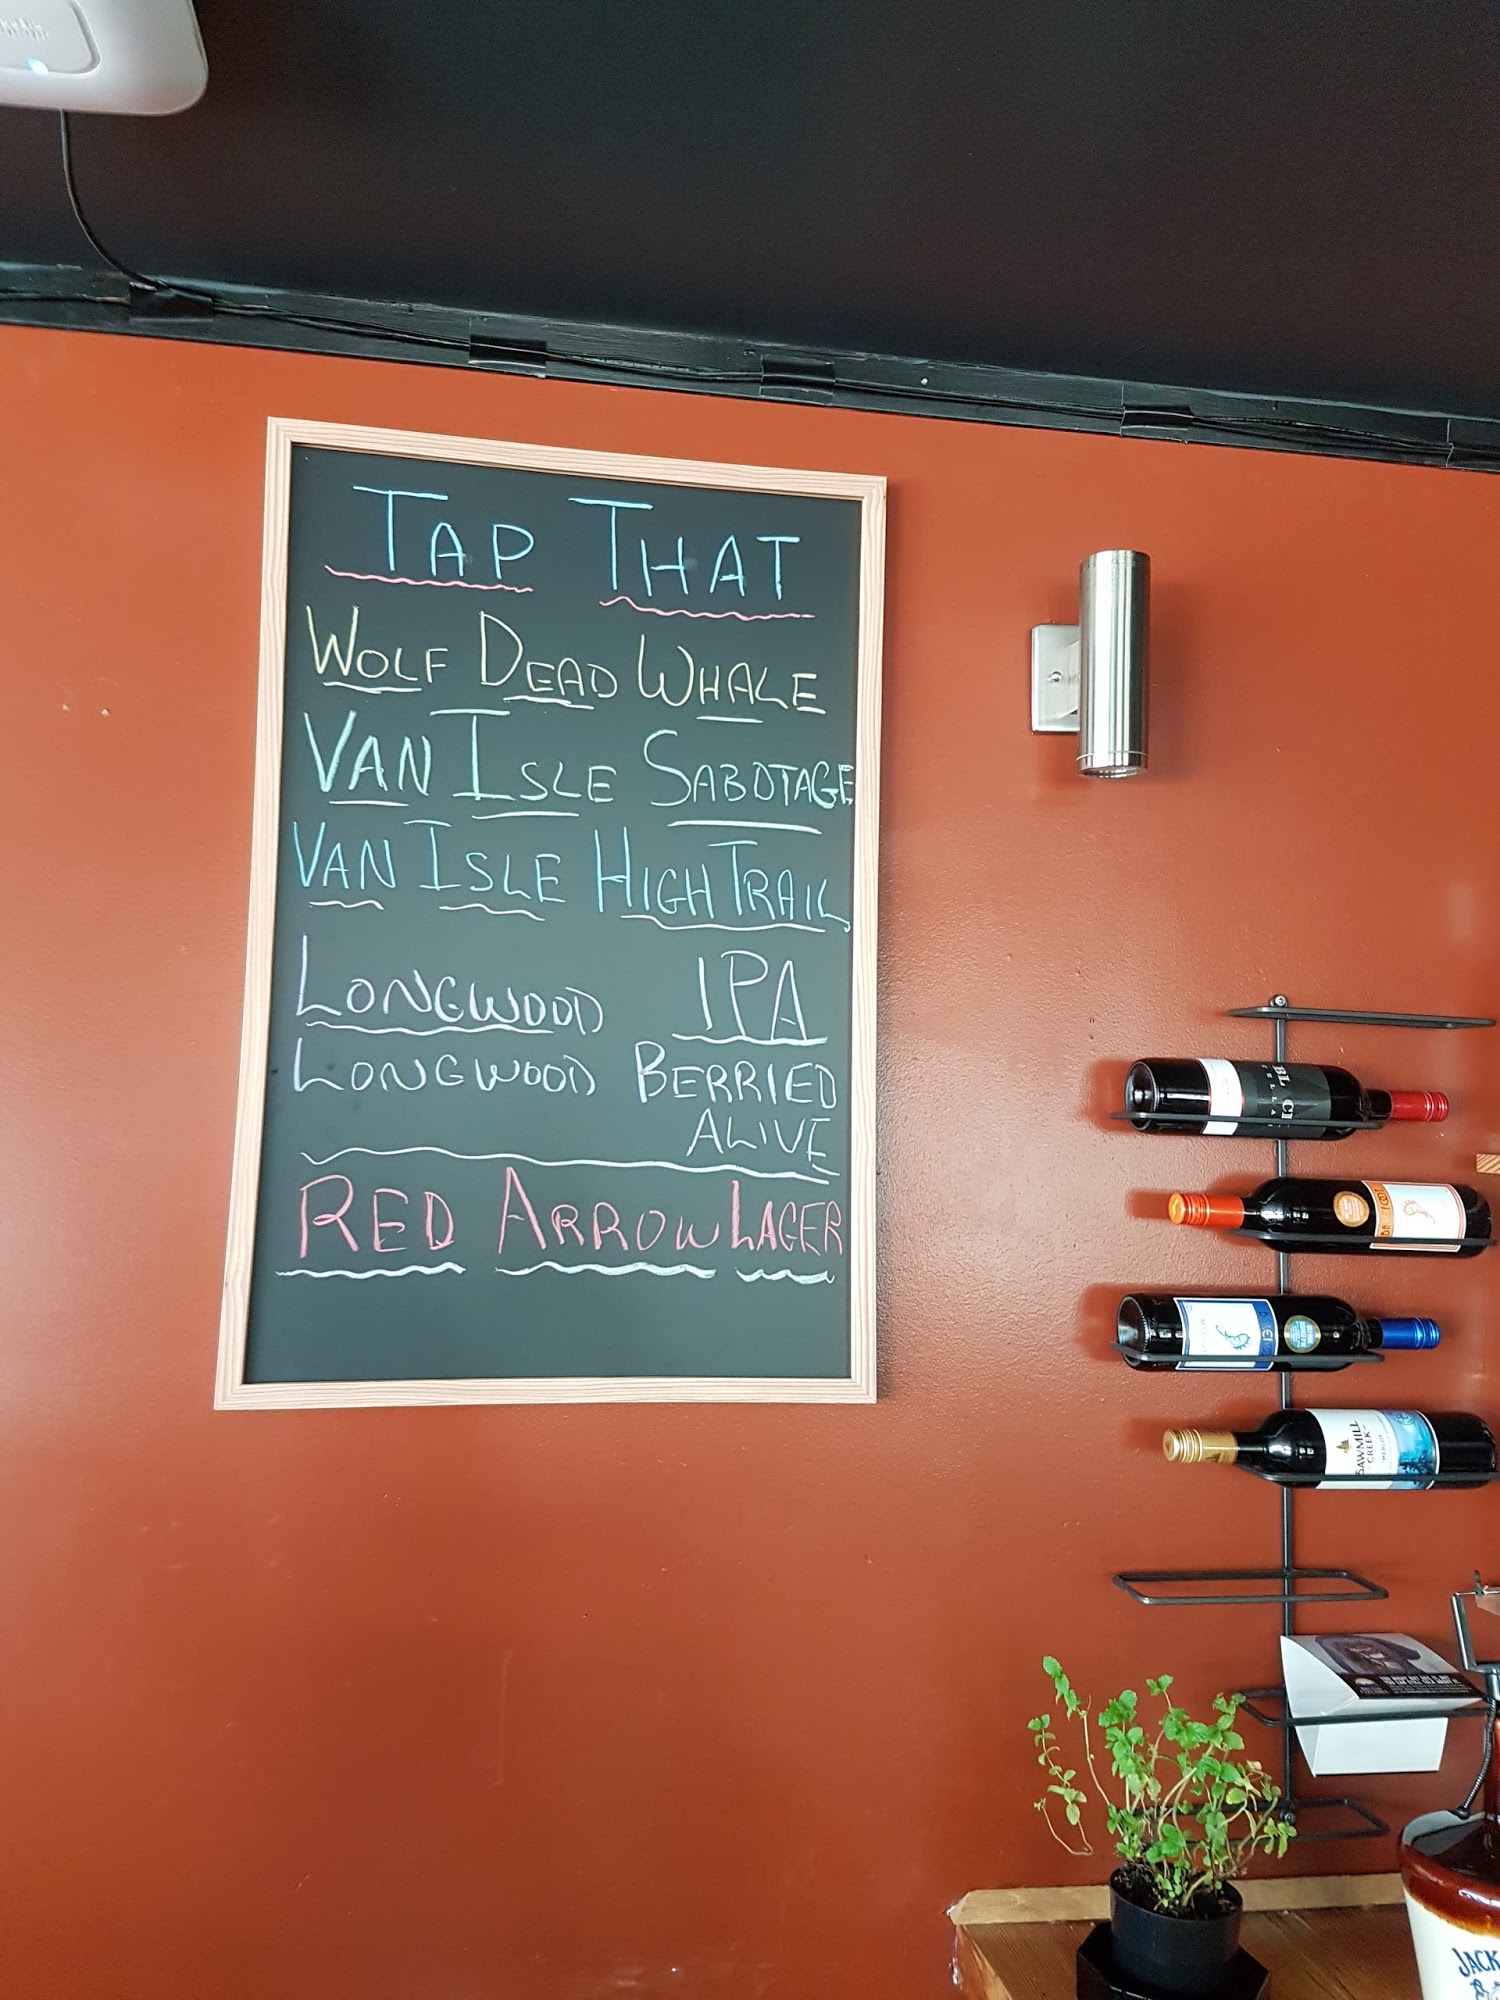 TAP THAT
WOLF DEAD WHALE
VAN ISLE SABOTAGE
VAN ISLE HIGH TRAIL
LONGWOOD IPA
LONGWOOD BERRIED
ALIVE
RED ARROW LAGER
BAREFOOT
SAWMILL
CREEK
MERLOT
JACK